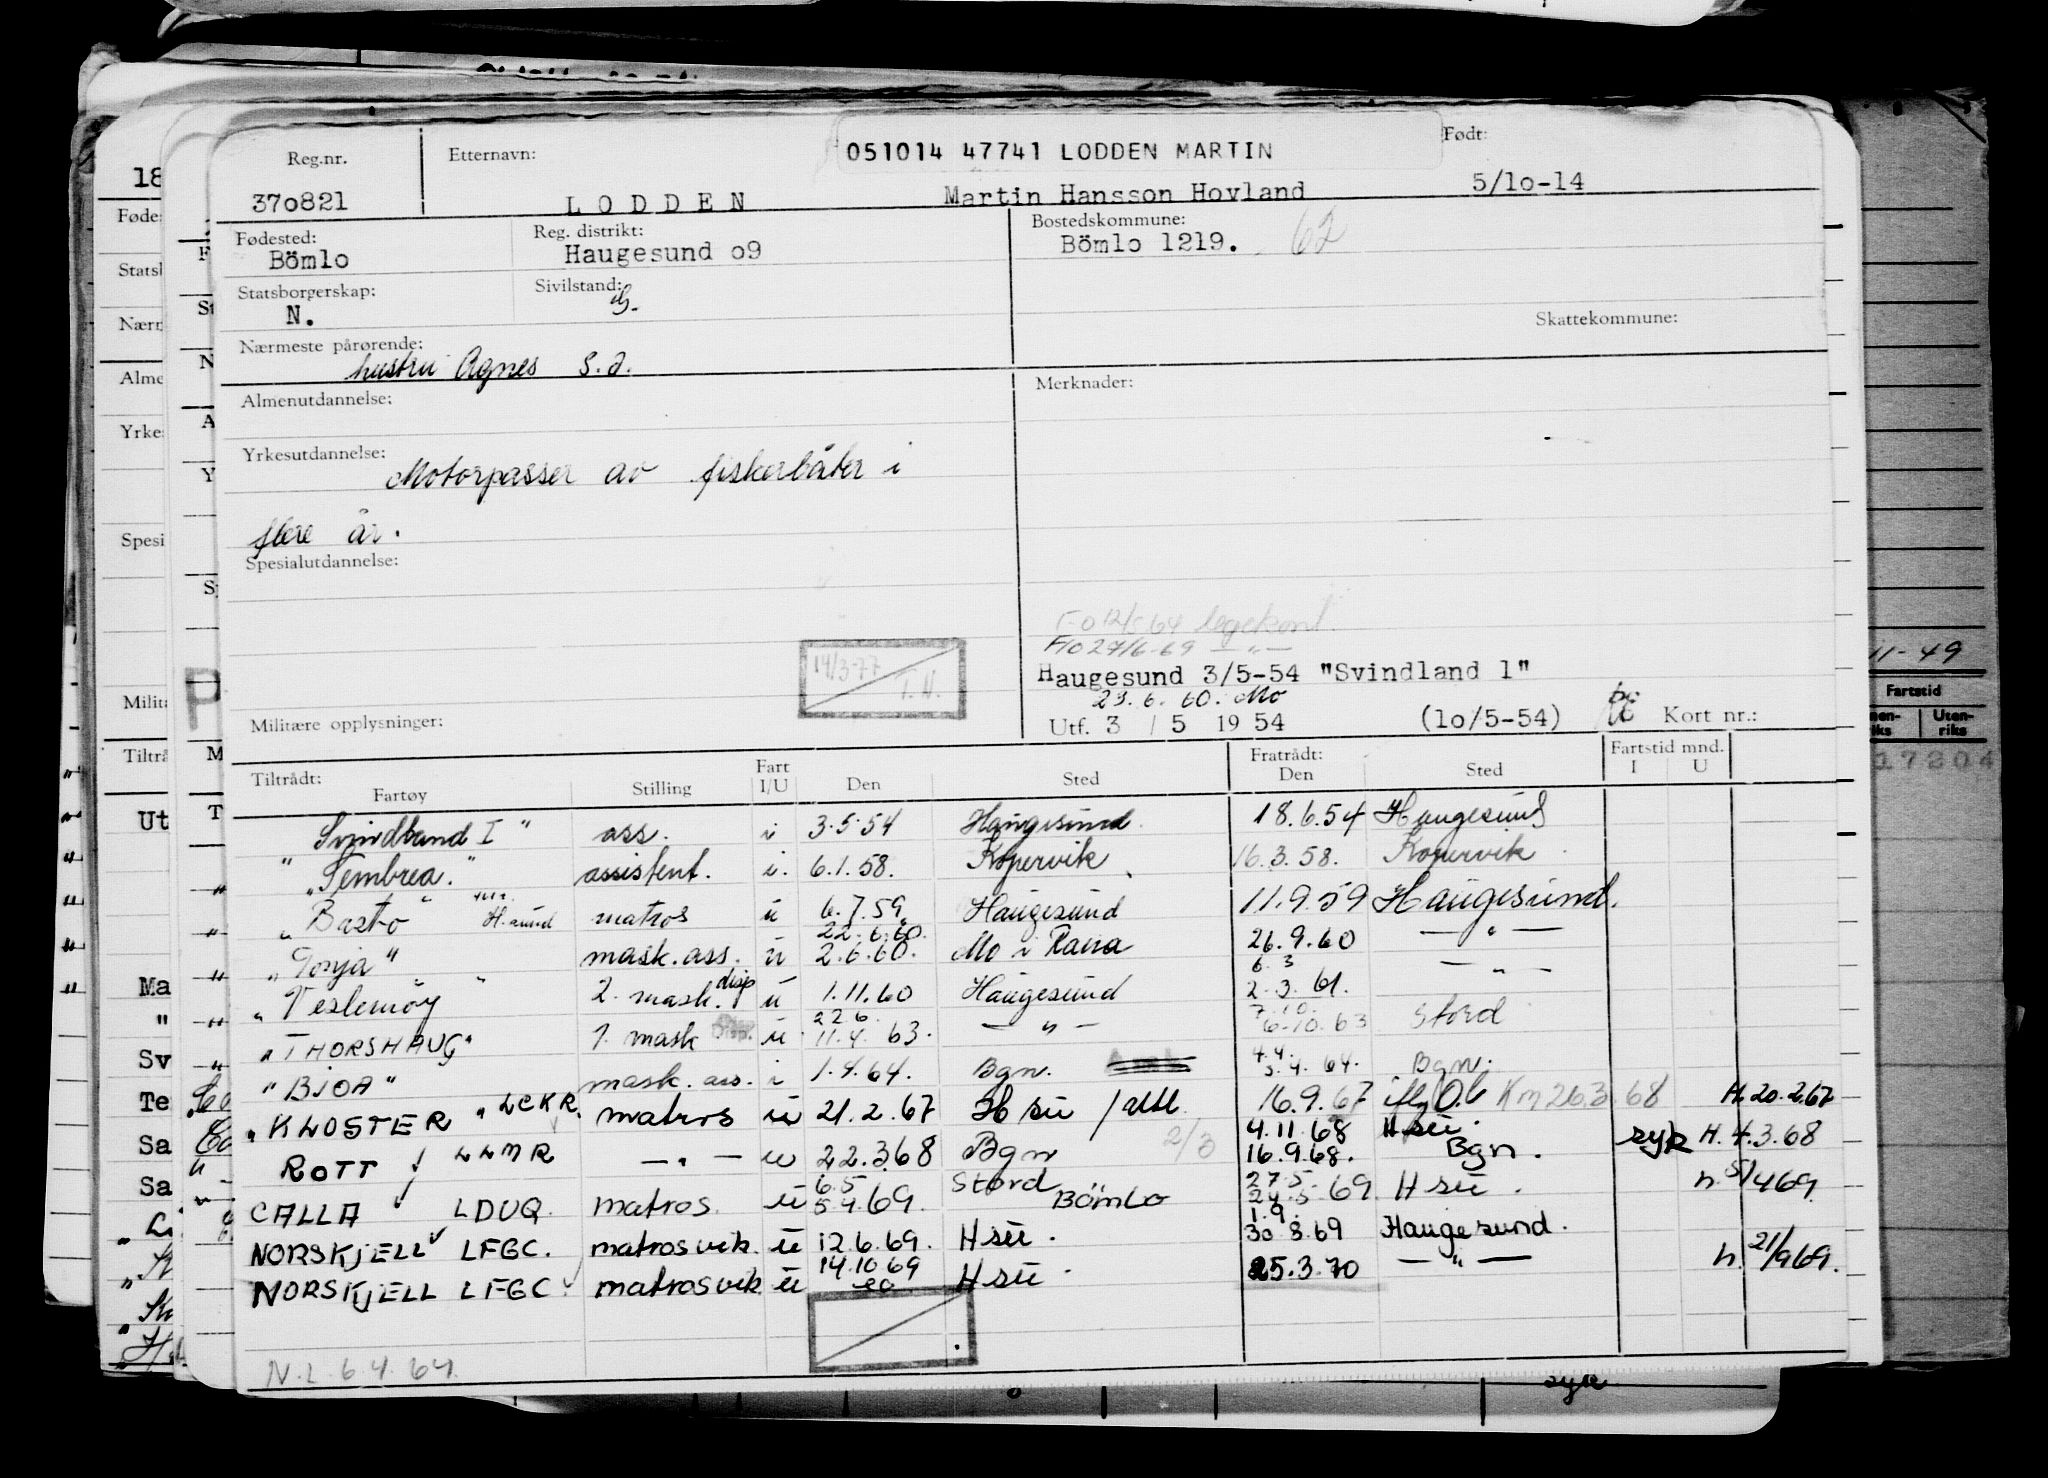 051014 47741 LODDEN MARTIN
Reg.nr. Etternavn: Født:
370821 LODDEN Martin Hansson Hovland 5/10-14
Fødested: Reg. distrikt: Bostedskommune:
Bömlo Haugesund 09 Bömlo 1219. 62
Statsborgerskap: Sivilstand:
N. G.
Skattekommune:
Nærmeste pårørende:
hustru Agnes s.d.
Almenutdannelse: Merknader:
Yrkesutdannelse:
Motorpasser av fiskerbåter i
flere år.
Spesialutdannelse:
legekont.
14/3-77 T.N.
Haugesund 3/5-54 "Svindland 1"
23.6.60. Mo
Militære opplysninger: Utf. 3 / 5 1954 (10/5-54) Kort nr.:
Tiltrådt: Fart Fratrådt: Fartstid mnd.
Fartøy Stilling I/U Den Sted Den Sted I U
Svindland I" ass. i 3.5.54 Haugesund 18.6.54 Haugesund
"Tembrea." assistent. i. 6.1.58. Kopervik 16.3.58. Kopervik
"Bastö" H.sund matros u 6.7.59 Haugesund 11.9.59 Haugesund.
22.6.60.
"Tonja" mask.ass. u 2.6.60. Mo i Rana 26.9.60 — " —
6 3
"Veslemöy" 2. mask. disp u 1.11.60 Haugesund 2.3.61. — " —
22 6 7.10.
"THORSHAUG" 1. mask u 11.4.63. — " — 6.10.63 Stord
4.4.
"BJOA" mask. ass. i 1.4.64. Bgn. 3.4.64. Bgn.
"KLOSTER" LCKR. matros u 21.2.67 H su 16.9.67 68 H.20.2.67
4.11.68 H su.
ROTT LLMR — " — u 22.3.68 Bgn 2/3 16.9.68. Bgn. syk H.4.3.68
6.5 Stord 27.5
CALLA LDUQ. matros. u 5.4.69. Bömlo 24.5.69. H su. h. 5/4 69.
1.9.
NORSKJELL LFGC. matros vik. u 12.6.69. H su. 30.8.69 Haugesund.
14.10.69
NORSKJELL LFGC. matros vik. u H su. 25.3.70 — " — h. 21/9 69.
N.L. 6.4.64.
11-49
Fartstid
Uten-
riks
17204
syk